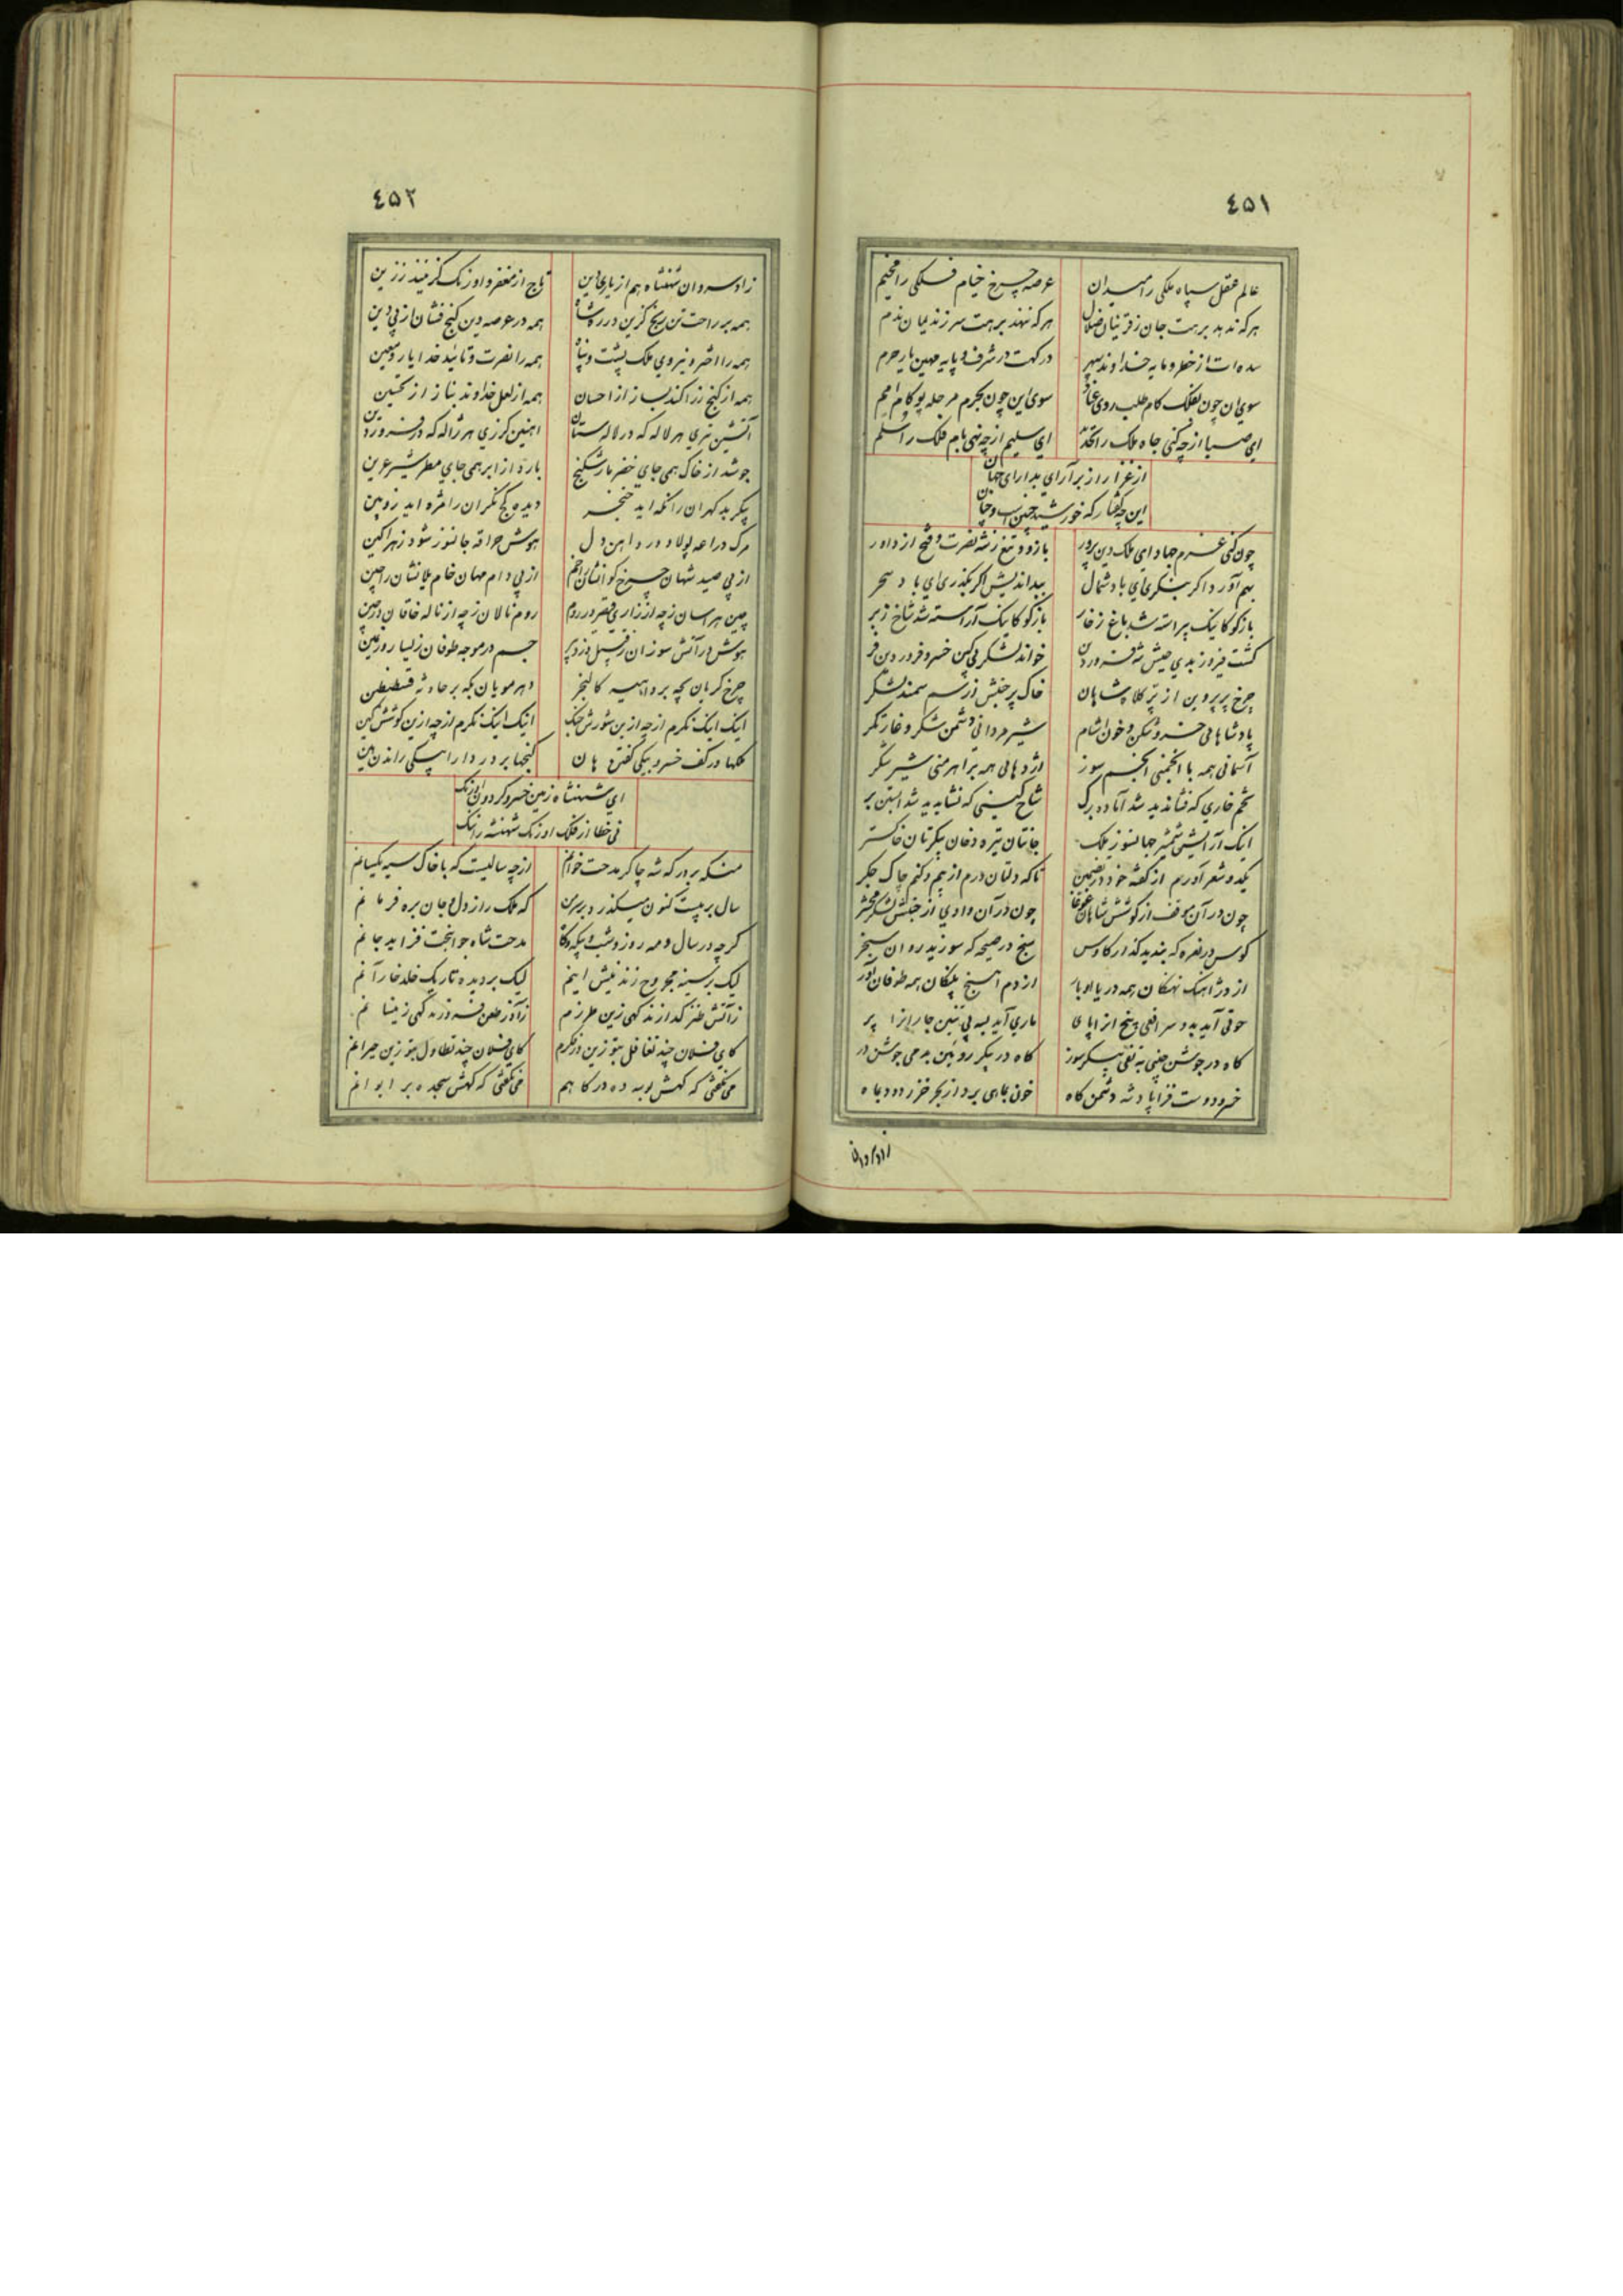 ٤٥١
عالم عقل سپاه ملکی را میدان عرصه چرخ خیام فلکی را مخیم
هر که ندهد برهت جان ز قرنیان ضلال هر که ننهد برهت سر ز ندیمان ندم
سده ات از خطر و مایه خداوند سپهر درکهت در شرف و پایه مهین یار حرم
سوی ان چون بفلک کام طلب روی سوی این چون بحرم مرحله پو کام امم
ای صبا از چه کنی جاه ملک را ای سلیم از چه نهی بام فلک را سلم
از غزا راز بر آرای بدارای جهان
این چه گفتار که خورشید چنین است و چنان
چون کنی عزم جهاد ای ملک دین پرور بازو و تیغ ز شه نصرت و فتح از داور
بهم آورد اگر بنگری ای باد شمال ببداندیش اگر بگذری ای باد سحر
بازگو کاینک پیراسته شد باغ ز خار بازگو کاینک آراسته شد شاخ ز بر
کشت فیروز بدی جیش شه فروردین خواند لشکر پی کین خسرو فروردین فر
چرخ پر پروین از ترک کلاه شاهان خاک پر جنبش ز سم سمند لشکر
پادشاهانی خسرو شکن و خون اشام شیر مردانی دشمن شکر و غارتگر
آسمانی همه با انجمنی انجم سوز اژدهائی همه بر اهرمنی شیر شکر
تخم خاری که فشاندید شد آماده برگ شاخ کینی که نشاندید شد آبستن بر
اینک از آتش شمشیر جهانسوز ملک جانتان تیره دخان پیکرتان خاکستر
یکدو شعر آورم از گفته خود در تضمین تا که دلتان درم از بیم و کنم چاک جگر
چون در آن موقف از کوشش شاهان غوغا چون در آن وادی از جنبش لشکر محشر
کوس در نعره که بندید گذار کاوس سنج در صیحه که سوزید روان سنجر
از دژ اهنک نهنگان همه دریا اوبار از دم اهنج پلنگان همه طوفان آور
گاه در جوشن چینی به تفی پیکر سوز گاه در پیکر روئین بدمی جوشن در
خسرو دوست فزا پادشه دشمن کاه
زاد سروان
٤٥٢
زاد سروان شهنشاه هم از یاری دین تاج از مغفر و اورنگ گزینند ز زین
همه بر راحت تن رنج گزین در ره شاه همه در عرصه دین گنج فشان از پی دین
همه را اختر و نیروی ملک پشت و پناه همه را نصرت و تائید خدا یار و معین
همه از گنج زر اکند بساز از احسان همه از لعل خداوند بناز از تحسین
آتشین تیری هر لاله که در لالستان اهنین گرزی هر ژاله که در فروردین
جوشد از خاک همی جای خضر مار شکنج بارد از ابر همی جای مطر شیر عرین
پیکر بد گهران را نگه اید خنجر دیده کج نگران را مژه اید زوبین
مرگ دراعه پولاد درد اهن دل هوش حراقه جانسوز شود زهراگین
از پی صید شهان چرخ از پی دام مهان خام یلانشان را چین
چین هراسان ز چه از زاری قیصر در روم روم نالان ز چه از ناله خاقان در چین
هوش در آتش سوزان جسم در موجه طوفان
چرخ گریان بچه بر داهیه کالنجر دهر مویان بکه بر حادثه قسطنطین
اینک اینک نگرم از چه ازین شورش جنگ اینک اینک نگرم از چه ازین کوشش کین
ملکها در کف خسرو بیکی گفتن هان گنجها بر در دارا بیکی راندن هین
ای شهنشاه زمین خسرو گردون اورنگ
نی خطا از فلک اورنگ شهنشه را ننگ
منکه بر درگه شه چاکر مدحت خوانم از چه سالیست که با خاک سیه یکسانم
سال بر بیست کنون میگذرد بر سر من که ملک راز دل و جان بره فرمانم
گرچه در سال و مه روز و شب و بیگه و گاه مدحت شاه جوانبخت فزاید جانم
لیک بر سینه مجروح زند نیش اینم لیک بر دیده تاریک خلد خار آنم
ز آتش طنز گدازند گهی زین طرزم ز آذر طعن فروزند گهی زینسانم
کای فلان چند تغافل بتو زین در گرم کای فلان چند تطاول بتو زین حیرانم
می نگفتی که گهش بوسه ده درگاهم می نگفتی که گهش سجده بر ایوانم